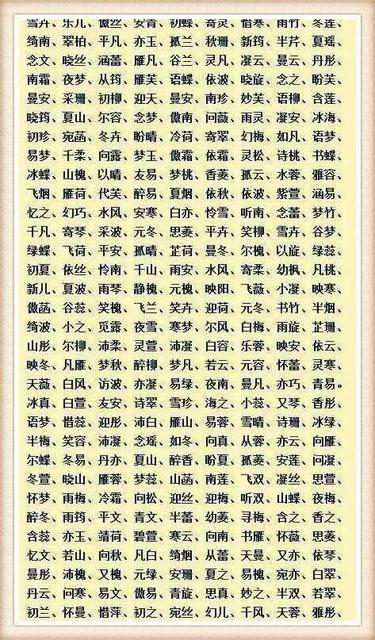 雪卉、乐儿、傲丝、安青、初蝶、寄灵、惜寒、雨竹、冬莲、
绮南、翠柏、平凡、亦玉、孤兰、秋珊、新筠、半芹、夏瑶、
念文、晓丝、涵蕾、雁凡、谷兰、灵凡、凝云、曼云、丹彤、
南霜、夜梦、从筠、雁芙、语蝶、依波、晓旋、念之、盼芙、
曼安、采珊、初柳、迎天、曼安、南珍、妙芙、语柳、含莲、
晓筠、夏山、尔容、念梦、傲南、问薇、雨灵、凝安、冰海、
初珍、宛菡、冬卉、盼晴、冷荷、寄翠、幻梅、如凡、语梦、
易梦、千柔、向露、梦玉、傲霜、依霜、灵松、诗桃、书蝶、
冰蝶、山槐、以晴、友易、梦桃、香菱、孤云、水蓉、雅容、
飞烟、雁荷、代芙、醉易、夏烟、依秋、依波、紫萱、涵易、
忆之、幻巧、水风、安寒、白亦、怜雪、听南、念蕾、梦竹、
千凡、寄琴、采波、元冬、思菱、平卉、笑柳、雪卉、谷梦、
绿蝶、飞荷、平安、孤晴、芷荷、曼冬、尔槐、以旋、绿蕊、
初夏、依丝、怜南、千山、雨安、水风、寄柔、幼枫、凡桃、
新儿、夏波、雨琴、静槐、元槐、映阳、飞薇、小凝、映寒、
傲菡、谷蕊、笑槐、飞兰、笑卉、迎荷、元冬、书竹、半烟、
绮波、小之、觅露、夜雪、寒梦、尔风、白梅、雨旋、芷珊、
山彤、尔柳、沛柔、灵萱、沛凝、白容、乐蓉、映安、依云、
映冬、凡雁、梦秋、醉柳、梦凡、若云、元容、怀蕾、灵寒、
天薇、白风、访波、亦凝、易绿、夜南、曼凡、亦巧、青易。
冰真、白萱、友安、诗翠、雪珍、海之、小蕊、又琴、香彤、
语梦、惜蕊、迎彤、沛白、雁山、易蓉、雪晴、诗珊、冰绿、
半梅、笑容、沛凝、念瑶、如冬、向真、从蓉、亦云、向雁、
尔蝶、冬易、丹亦、夏山、醉香、盼夏、孤菱、安莲、问凝、
冬萱、晓山、雁蓉、梦蕊、山菡、南莲、飞双、凝丝、思萱、
怀梦、雨梅、冷霜、向松、迎丝、迎梅、听双、山蝶、夜梅、
醉冬、雨筠、平文、青文、半蕾、幼菱、寻梅、含之、香之、
含蕊、亦玉、靖荷、碧萱、寒云、向南、书雁、怀薇、思菱、
忆文、若山、向秋、凡白、绮烟、从蕾、天曼、又亦、依琴、
曼彤、沛槐、又槐、元绿、安珊、夏之、易槐、宛亦、白翠、
丹云、问寒、易文、傲易、青旋、思真、妙之、半双、若翠、
初兰、怀曼、惜萍、初之、宛丝、幻儿、千风、天蓉、雅彤、